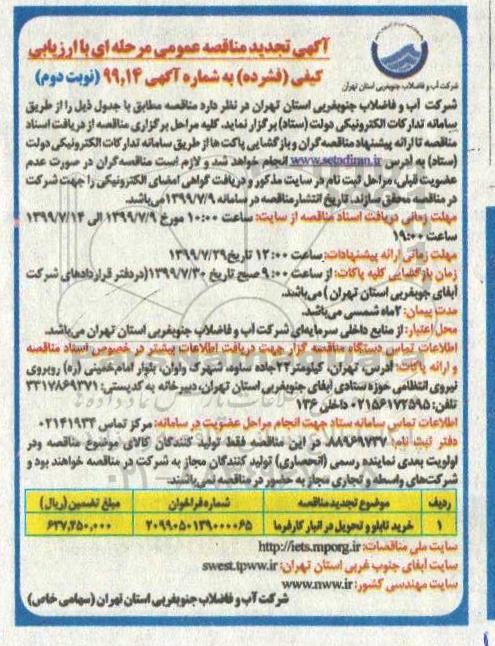 آگهی تجدید مناقصه عمومی مرحله ای با ارزیابی
کیفی (فشرده) به شماره آگهی ۹۹,۱۴ (نوبت دوم)
شرکت آب و فاضلاب جنوبغربی استان تهران
شرکت آب و فاضلاب جنوبغربی استان تهران در نظر دارد مناقصه مطابق با جدول ذیل را از طریق
سامانه تدارکات الکترونیکی دولت (ستاد) برگزار نماید. کلیه مراحل برگزاری مناقصه از دریافت اسناد
مناقصه تا ارائه پیشنهاد مناقصه گران و بازگشایی پاکت ها از طریق سامانه تدارکات الکترونیکی دولت
(ستاد) به آدرس www.setadiran.ir انجام خواهد شد و لازم است مناقصه گران در صورت عدم
عضویت قبلی، مراحل ثبت نام در سایت مذکور و دریافت گواهی امضای الکترونیکی را جهت شرکت
در مناقصه محقق سازند. تاریخ انتشار مناقصه در سامانه ۱۳۹۹/۷/۹ می‌باشد.
مهلت زمانی دریافت اسناد مناقصه از سایت: ساعت ۱۰:۰۰ مورخ ۱۳۹۹/۷/۹ الی ۱۳۹۹/۷/۱۴
ساعت ۱۹:۰۰
مهلت زمانی ارائه پیشنهادات: ساعت ۱۲:۰۰ تاریخ ۱۳۹۹/۷/۲۹
زمان بازگشایی کلیه پاکات: از ساعت ۹:۰۰ صبح تاریخ ۱۳۹۹/۷/۳۰ (در دفتر قراردادهای شرکت
آبفای جنوبغربی استان تهران) می‌باشند.
مدت پیمان: ۲ ماه شمسی می‌باشد.
محل اعتبار: از منابع داخلی سرمایه‌ای شرکت آب و فاضلاب جنوبغربی استان تهران می‌باشد.
اطلاعات تماس دستگاه مناقصه گزار جهت دریافت اطلاعات بیشتر در خصوص اسناد مناقصه
و ارائه پاکات: آدرس، تهران، کیلومتر ۲۲ جاده ساوه، شهرک واوان، بلوار امام خمینی (ره) روبروی
نیروی انتظامی حوزه ستادی آبفای جنوبغربی استان تهران، دبیرخانه به کدپستی: ۳۳۱۷۸۶۹۳۷۱
تلفن: ۰۲۱۵۶۱۷۲۵۹۵ داخلی ۱۳۶
اطلاعات تماس سامانه ستاد جهت انجام مراحل عضویت در سامانه: مرکز تماس ۰۲۱۴۱۹۳۴
دفتر ثبت نام: ۸۸۹۶۹۷۳۷ در این مناقصه فقط تولید کنندگان کالای موضوع مناقصه و در
اولویت بعدی نماینده رسمی (انحصاری) تولید کنندگان مجاز به شرکت در مناقصه خواهند بود و
شرکت‌های واسطه و تجاری مجاز به حضور در مناقصه نمی‌باشند.
ردیف موضوع تجدید مناقصه شماره فراخوان مبلغ تضمین (ریال)
۱ خرید تابلو و تحویل در انبار کارفرما ۲۰۹۹۰۵۰۱۳۹۰۰۰۰۶۵ ۶۳۷,۲۵۰,۰۰۰
سایت ملی مناقصات: http://iets.mporg.ir
سایت آبفای جنوب غربی استان تهران: swest.tpww.ir
سایت مهندسی کشور: www.nww.ir
شرکت آب و فاضلاب جنوبغربی استان تهران (سهامی خاص)